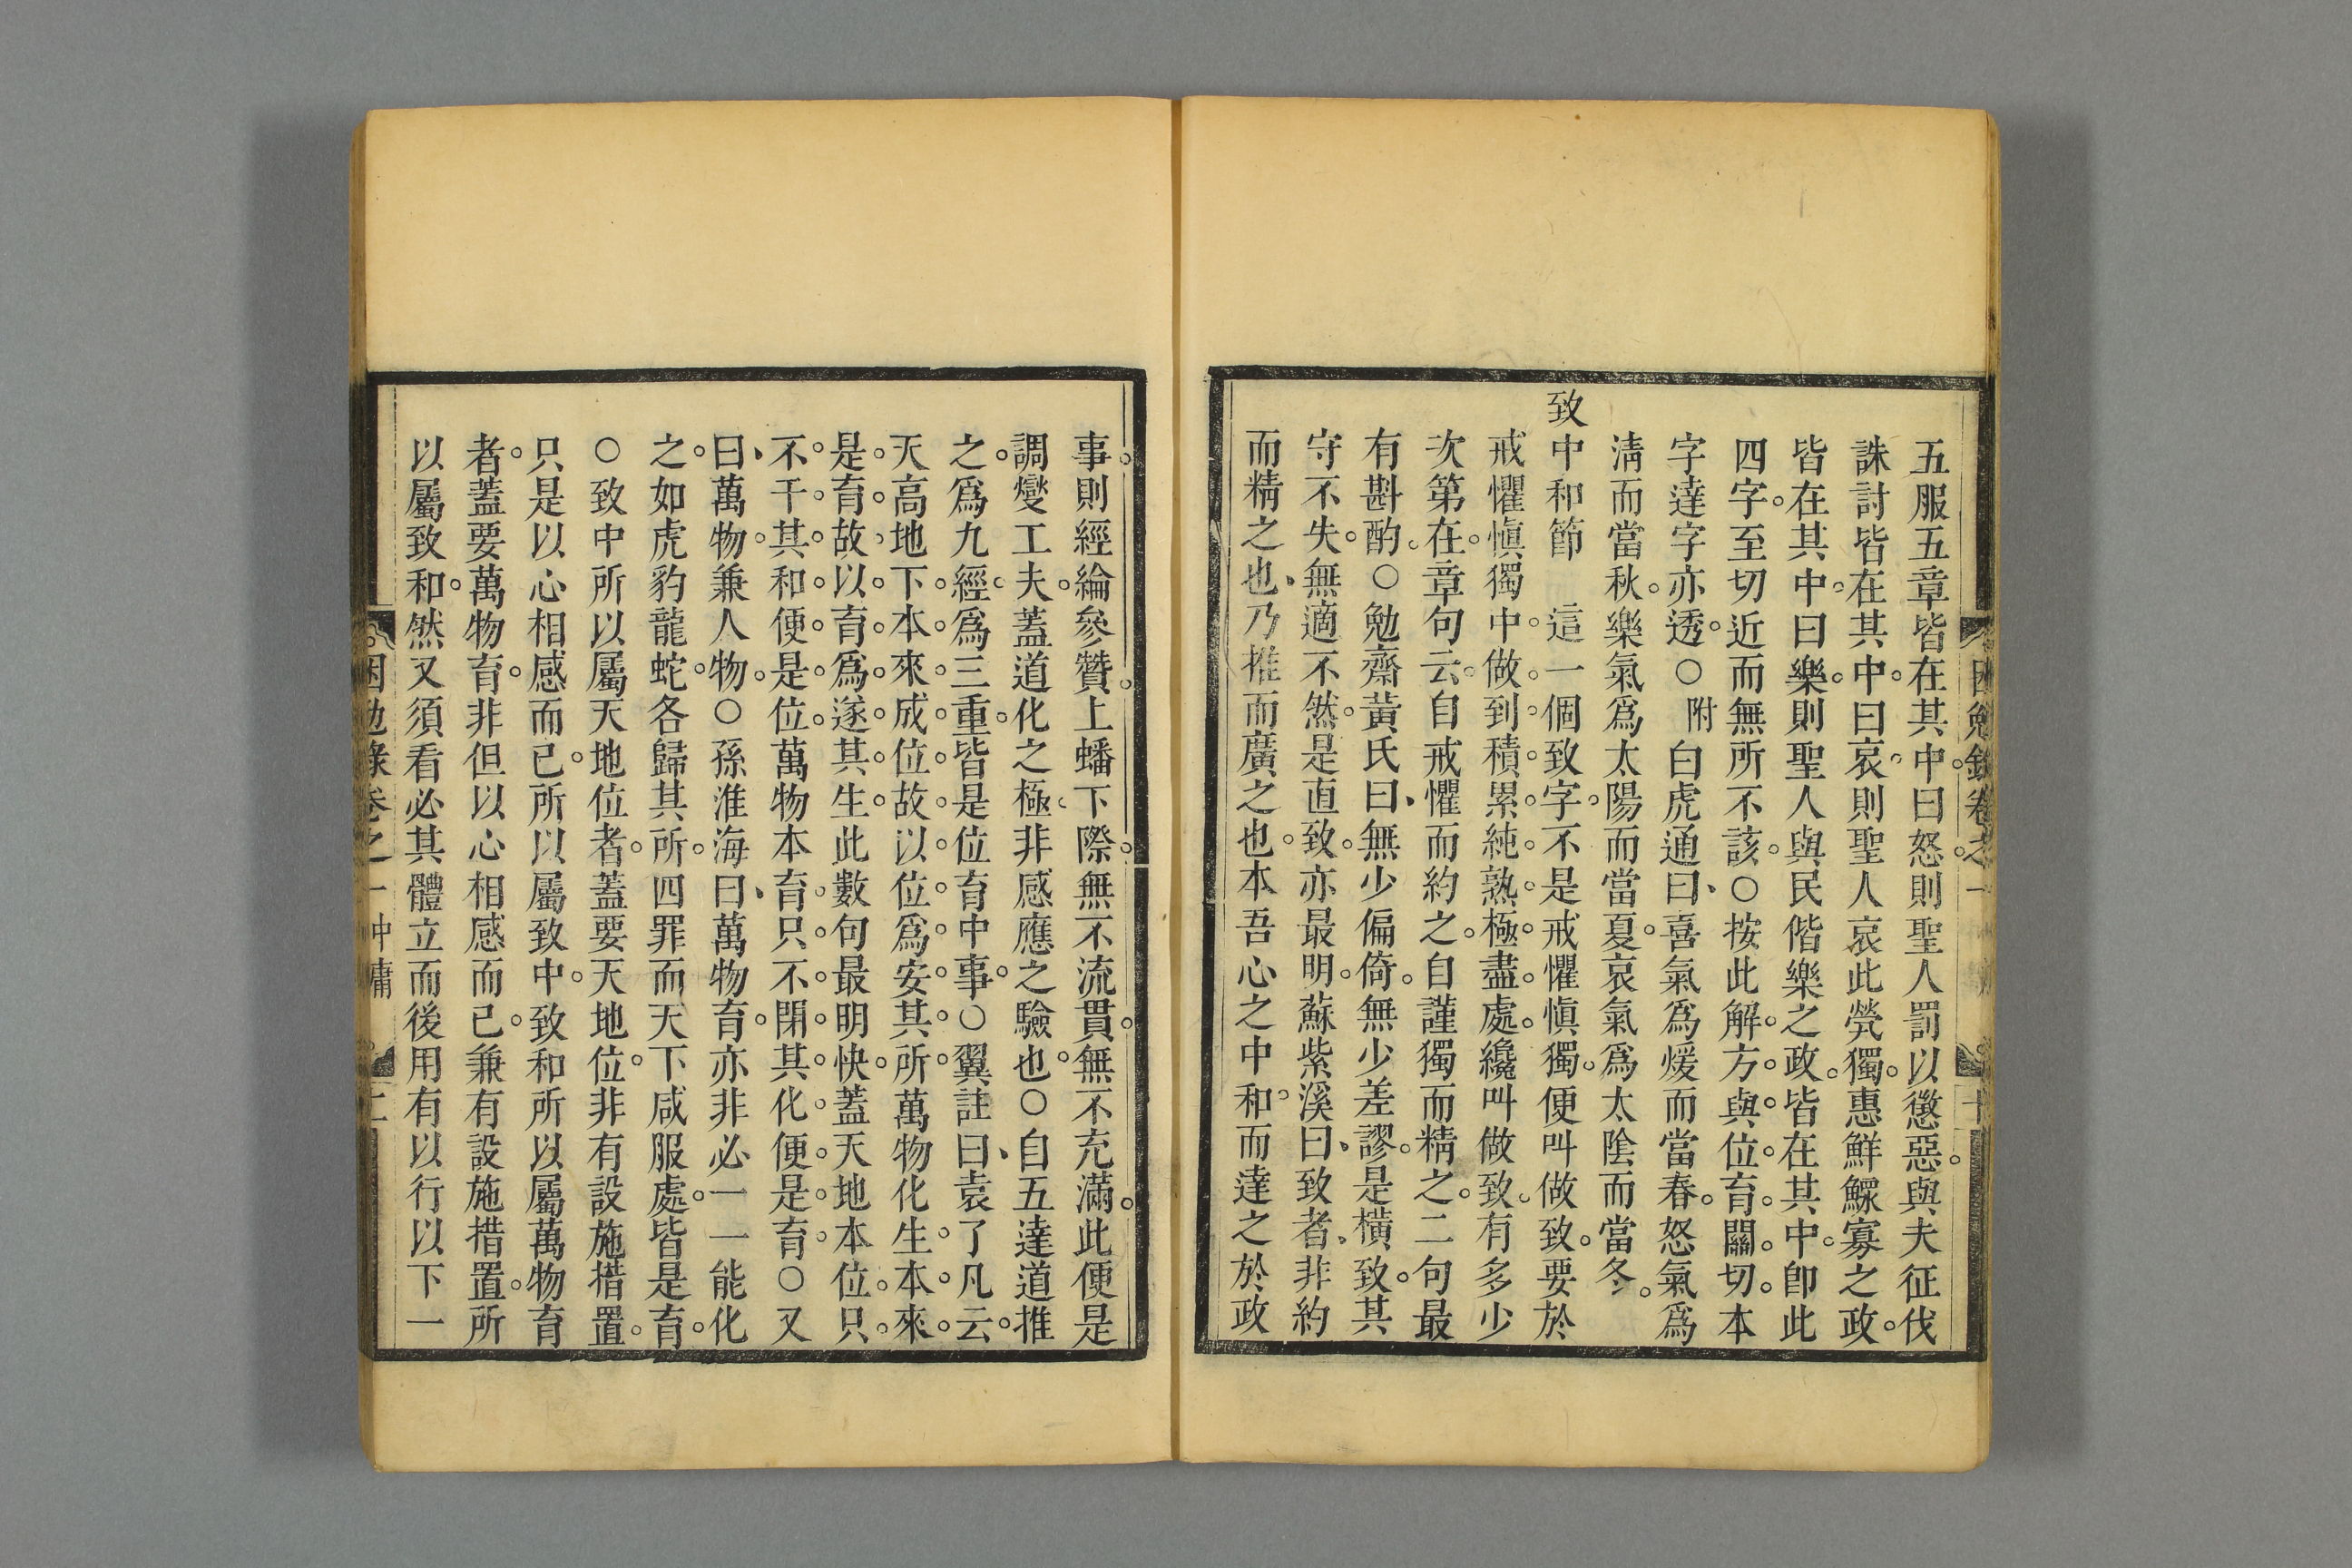 五服五章皆在其中曰怒則聖人罰以懲惡與夫征伐
誅討皆在其中曰哀則聖人哀此煢獨惠鮮鰥寡之政
皆在其中曰樂則聖人與民偕樂之政皆在其中卽此
四字至切近而無所不該○按此解方與位育關切本
字達字亦透○附白虎通曰喜氣爲煖而當春怒氣爲
淸而當秋樂氣爲太陽而當夏哀氣爲太陰而當冬
致中和節 這一個致字不是戒懼愼獨便叫做致要於
戒懼愼獨中做到積累純熟極盡處纔叫做致有多少
次第在章句云自戒懼而約之自謹獨而精之二句最
有斟酌○勉齋黃氏曰無少偏倚無少差謬是橫致其
守不失無適不然是直致亦最明蘇紫溪曰致者非約
而精之也乃推而廣之也本吾心之中和而達之於政
事則經綸參贊上蟠下際無不流貫無不充滿此便是
調燮工夫蓋道化之極非感應之驗也○自五達道推
之爲九經爲三重皆是位育中事○翼註曰袁了凡云
天高地下本來成位故以位爲安其所萬物化生本來
是育故以育爲遂其生此數句最明快蓋天地本位只
不干其和便是位萬物本育只不閉其化便是育○又
曰萬物兼人物○孫淮海曰萬物育亦非必一一能化
之如虎豹龍蛇各歸其所四罪而天下咸服處皆是育
○致中所以屬天地位者蓋要天地位非有設施措置
只是以心相感而已所以屬致中致和所以屬萬物育
者蓋要萬物育非但以心相感而已兼有設施措置所
以屬致和然又須看必其體立而後用有以行以下一
困勉錄卷之一 中庸